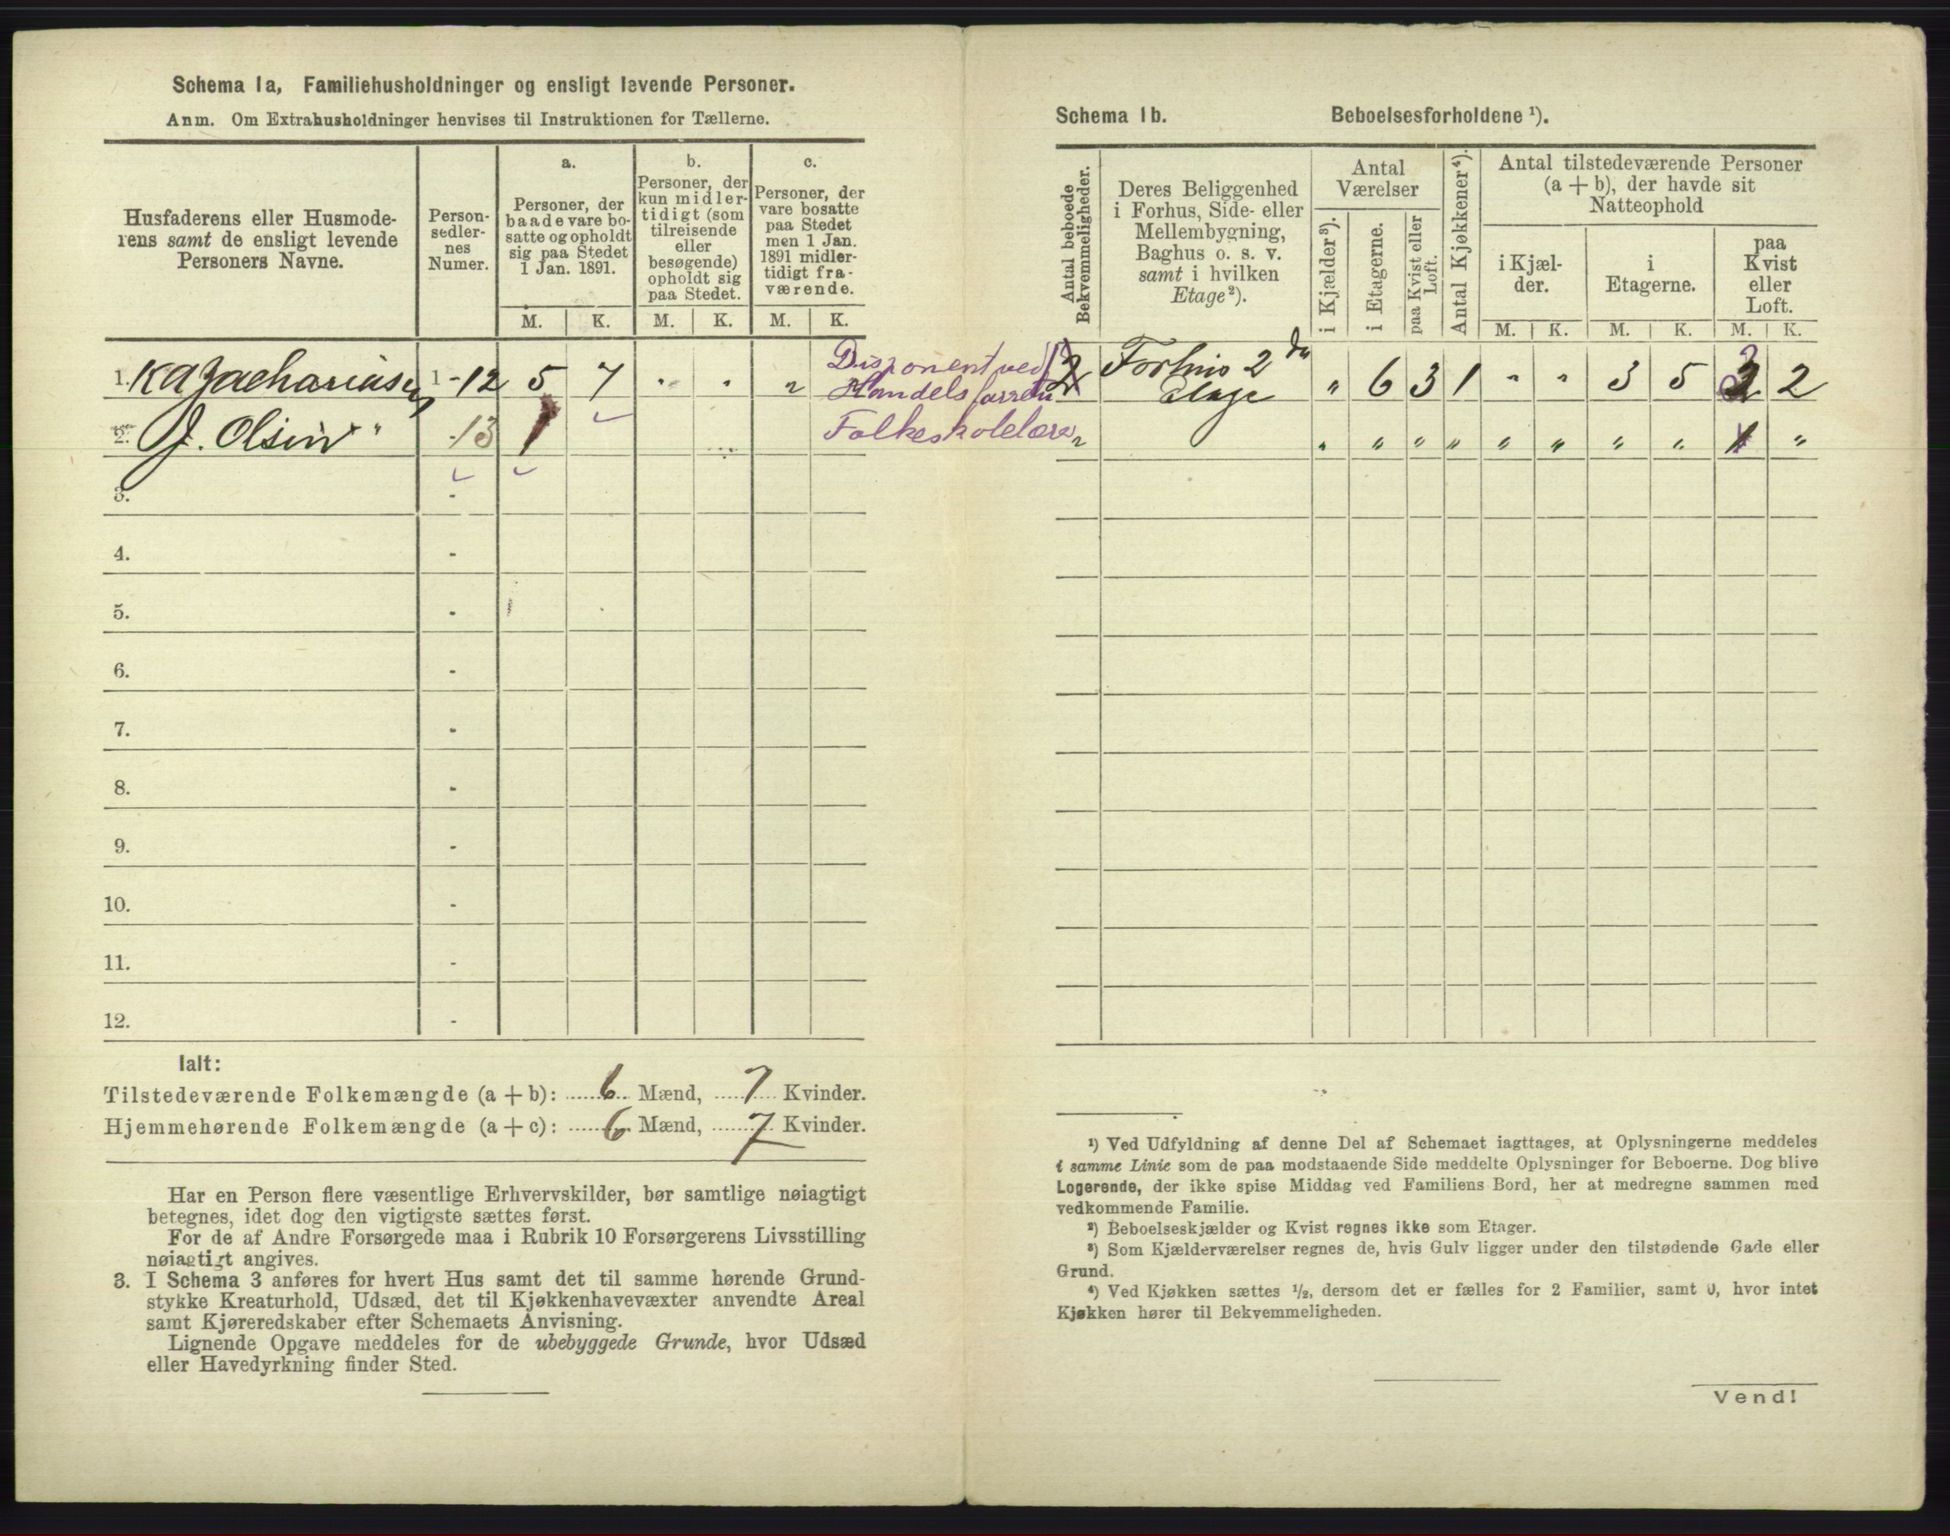 Schema 1a, Familiehusholdninger og ensligt levende Personer.
Anm. Om Extrahusholdninger henvises til Instruktionen for Tællerne.
Husfaderens eller Husmode-
rens samt de ensligt levende
Personers Navne.
Person-
sedler-
nes
Numer.
a.
Personer, der
baade vare bo-
satte og opholdt
sig paa Stedet
1 Jan. 1891.
M. K.
b.
Personer, der
kun midler-
tidigt (som
tilreisende
eller
besøgende)
opholdt sig
paa Stedet.
M. K.
c.
Personer, der
vare bosatte
paa Stedet
men 1 Jan.
1891 midler-
tidigt fra-
værende.
M. K.
1. K A Zachariasen 1 - 12 5 7 " " " Disponent ved
Handels
2. J. Olsen " - 13 1 Folkeskolelærer
3. -
4. -
5. -
6. -
7. -
8. -
9. -
10. -
11. -
12. -
Ialt:
Tilstedeværende Folkemængde (a + b): 6 Mænd, 7 Kvinder.
Hjemmehørende Folkemængde (a + c): 6 Mænd, 7 Kvinder.
Har en Person flere væsentlige Erhvervskilder, bør samtlige nøiagtigt
betegnes, idet dog den vigtigste sættes først.
For de af Andre Forsørgede maa i Rubrik 10 Forsørgerens Livsstilling
nøiagtigt angives.
3. I Schema 3 anføres for hvert Hus samt det til samme hørende Grund-
stykke Kreaturhold, Udsæd, det til Kjøkkenhavevæxter anvendte Areal
samt Kjøreredskaber efter Schemaets Anvisning.
Lignende Opgave meddeles for de ubebyggede Grunde, hvor Udsæd
eller Havedyrkning finder Sted.
Schema 1b. Beboelsesforholdene ¹).
Antal beboede
Bekvemmeligheder.
Deres Beliggenhed
i Forhus, Side- eller
Mellembygning,
Baghus o. s. v.
samt i hvilken
Etage²).
Antal
Værelser
i Kjælder³).
i Etagerne.
paa Kvist eller
Loft.
Antal Kjøkkener⁴).
Antal tilstedeværende Personer
(a + b), der havde sit
Natteophold
i Kjæl-
der.
i
Etagerne.
paa
Kvist
eller
Loft.
M. K. M. K. M. K.
2 Forhus 2 den
Etage " 6 3 1 " " 3 5 3 2
" " " " " " " " " 1 "
¹) Ved Udfyldning af denne Del af Schemaet iagttages, at Oplysningerne meddeles
i samme Linie som de paa modstaaende Side meddelte Oplysninger for Beboerne. Dog blive
Logerende, der ikke spise Middag ved Familiens Bord, her at medregne sammen med
vedkommende Familie.
²) Beboelseskjælder og Kvist regnes ikke som Etager.
³) Som Kjælderværelser regnes de, hvis Gulv ligger under den tilstødende Gade eller
Grund.
⁴) Ved Kjøkken sættes ½, dersom det er fælles for 2 Familier, samt 0, hvor intet
Kjøkken hører til Bekvemmeligheden.
Vend!